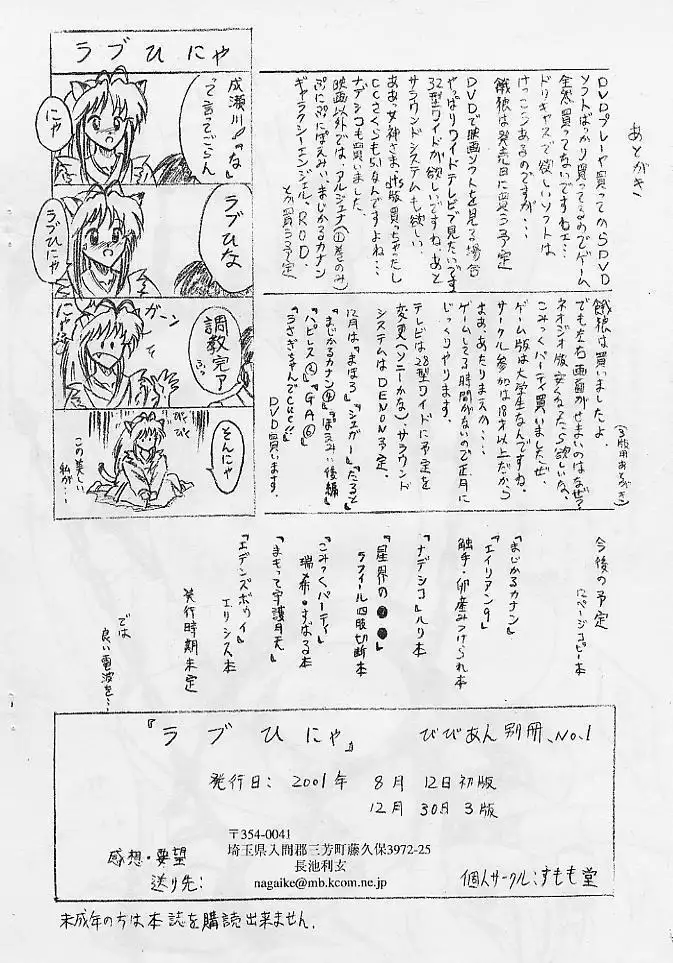 あとがき
DVDプレーヤ買ってからDVD
ソフトばっかり買ってるのでゲーム
全然買ってないですねェ…
ドリキャスで欲しいソフトは
けっこうあるのですが…
餓狼は発売日に買う予定
DVDで映画ソフトを見る場合
やっぱりワイドテレビで見たいです
32型ワイドが欲しいですね、あと
サラウンドシステムも欲しい
ああっ女神さまっdts版買っちゃったし
CCさくらも5.1なんですよね…
ナデシコも買いました。
映画以外では、アルジェナ(①巻のみ)
ぷにぷにぽえみぃ、まじかるカナン
ギャラクシーエンジェル、R.O.D.
とか買う予定
ラブひにゃ
成瀬川!「な」
って言ってごらん
にゃ
ラブひな
ラブひにゃ
ガーン
調教完了
ふっ
にゃ
そんにゃ
びく
びく
この美しい
私が…
(3版用あとがき)
餓狼は買いましたよ。
でも左右画面がせまいのはなぜ?
ネオジオ版安くなったら欲しいな。
こみっくパーティ買いましたぜ。
ゲーム版は大学生なんですね。
サークル参加は18才以上だから
まぁ、あたりまえか…
ゲームしてる時間がないので正月に
じっくりやります。
テレビは28型ワイドに予定を
変更(ソニーかな)、サラウンド
システムはDENON予定。
12月は『まほろ』『ジェガー』『だぁ』と
『まじかるカナン④』『ぽえみぃ後編』
『ハピレス②』『GA⑥』
『うさぎちゃんでCue!!』
DVD買います。
今後の予定
12ページコピー本
『まじかるカナン』
『エイリアン9』
触手・卵産みつけられ本
『ナデシコ』ルリ本
『星界の●●』
ラフィール四肢切断本
『こみっくパーティ』
瑞希・すばる本
『まもって守護月天』
『エデンズボゥイ』
エリシス本
発行時期未定
では
良い電波を…
『ラブひにゃ』 びびあん別冊、No.1
発行日: 2001年 8月 12日初版
12月 30日 3版
〒354-0041
埼玉県入間郡三芳町藤久保3972-25
長池利玄
nagaike@mb.kcom.ne.jp
感想・要望
送り先:
個人サークル:すもも堂
未成年の方は本誌を購読出来ません.